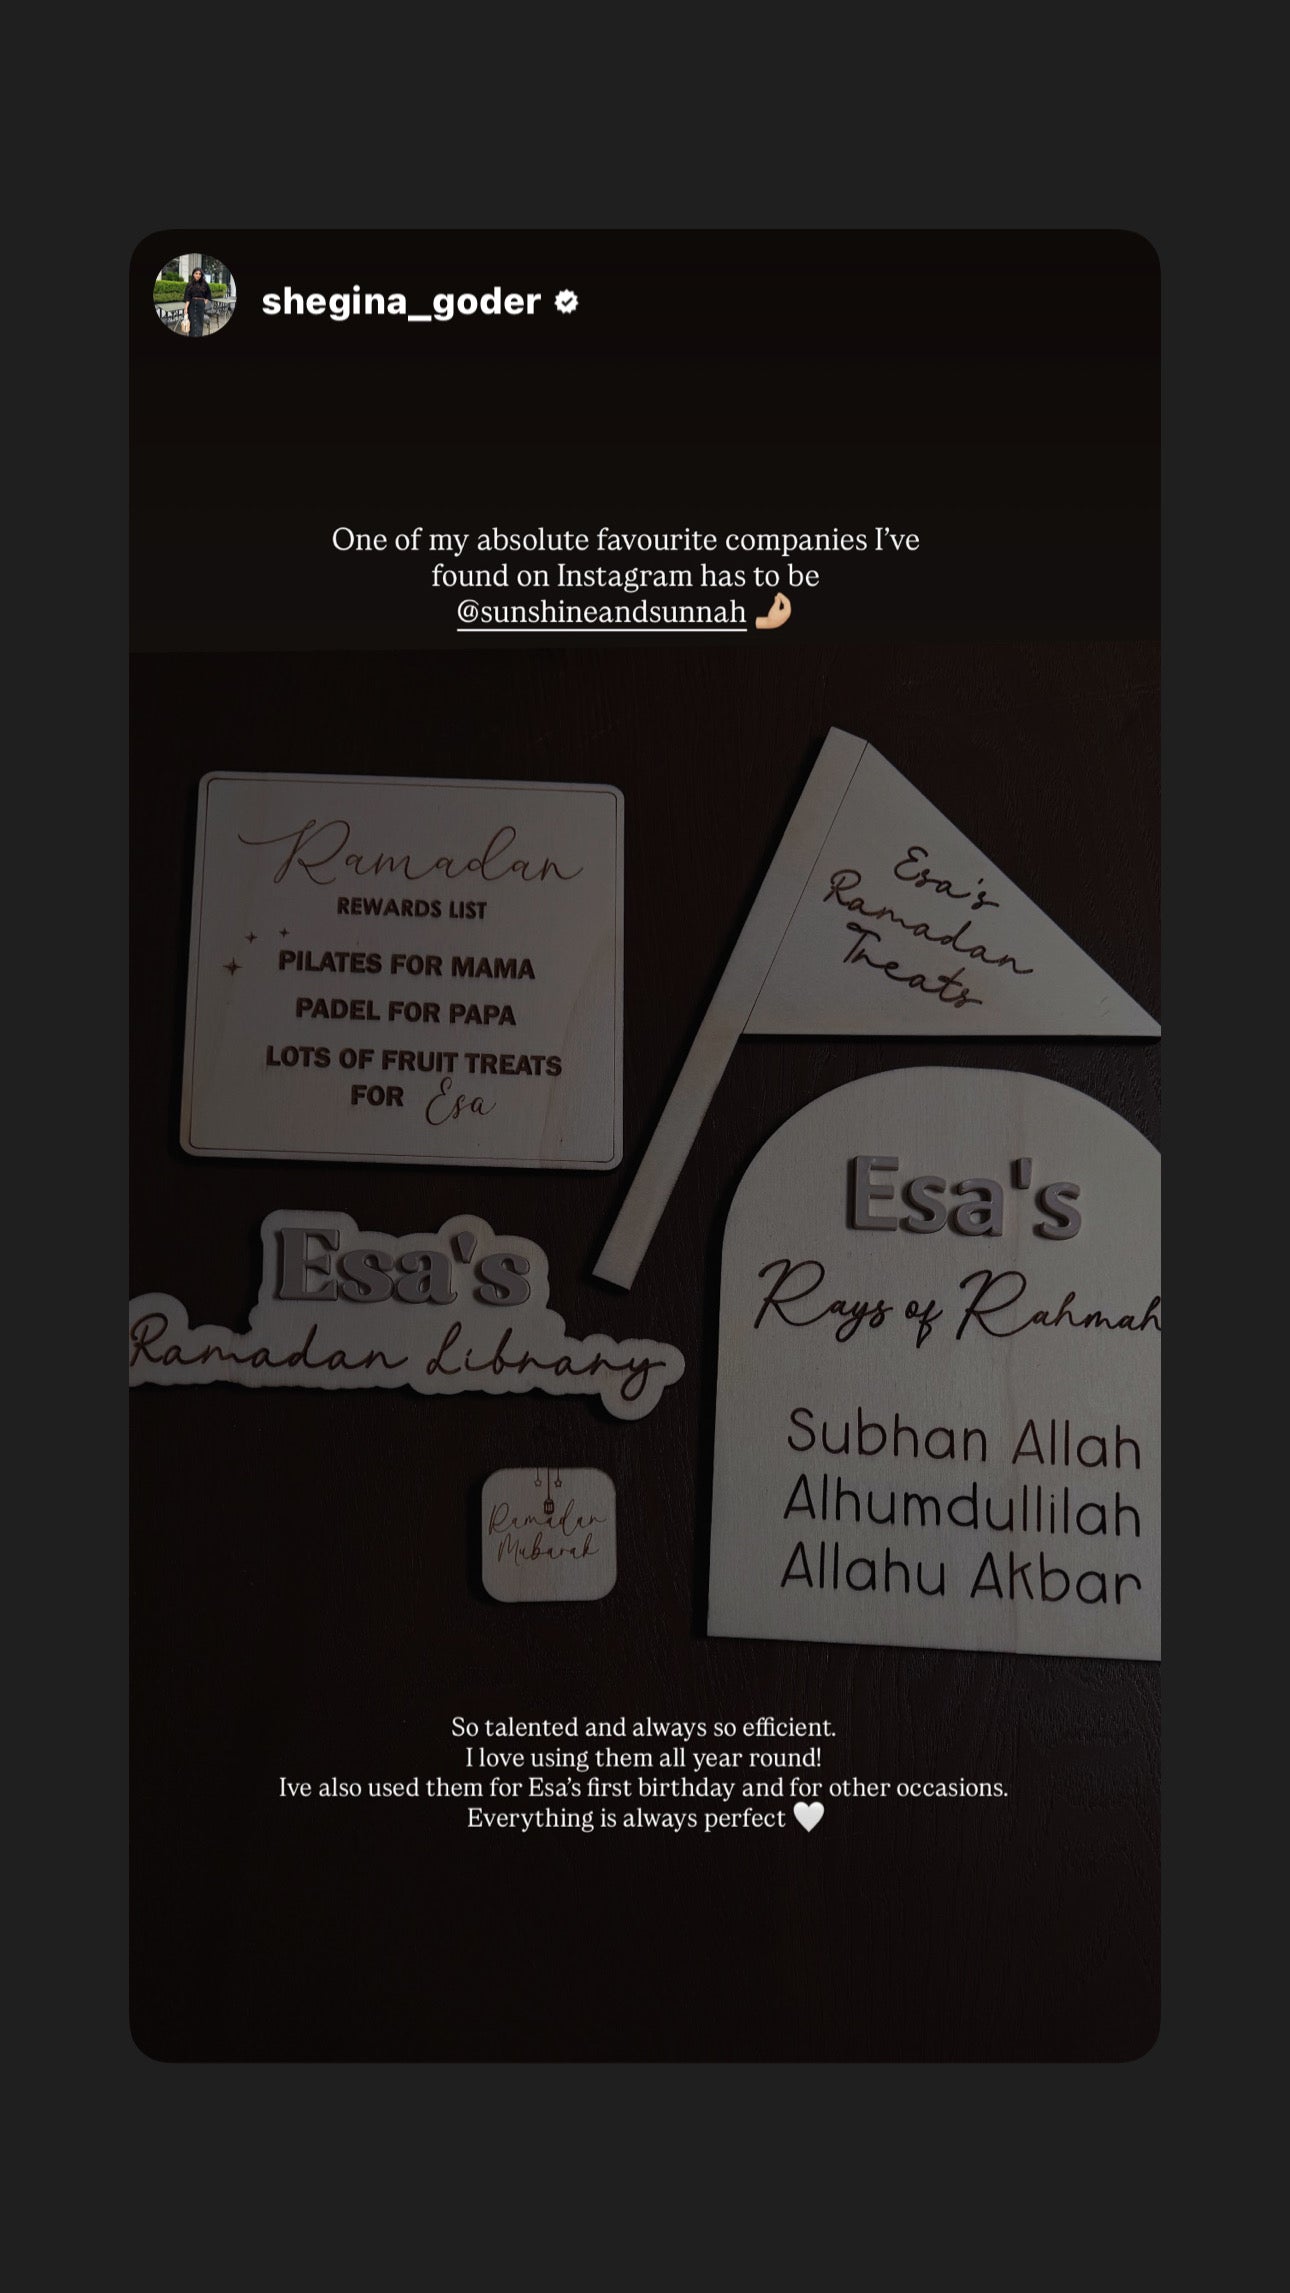 shegina_goder
One of my absolute favourite companies I've
found on Instagram has to be
@sunshineandsunnah 🤌🏼
Ramadan
REWARDS LIST
PILATES FOR MAMA
PADEL FOR PAPA
LOTS OF FRUIT TREATS
FOR Esa
Esa's
Ramadan
Treats
Esa's
Ramadan Library
Esa's
Rays of Rahmah
Subhan Allah
Alhumdullilah
Allahu Akbar
Ramadan
Mubarak
So talented and always so efficient.
I love using them all year round!
Ive also used them for Esa's first birthday and for other occasions.
Everything is always perfect 🤍